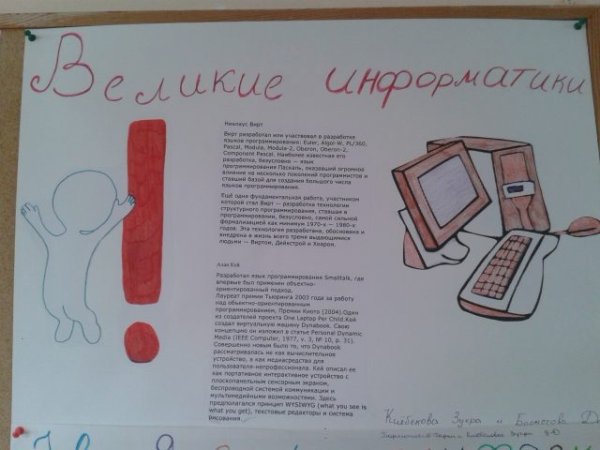 Великие информатики
Никлаус Вирт
Вирт разработал или участвовал в разработке
языков программирования: Euler, Algol-W, PL/360,
Pascal, Modula, Modula-2, Oberon, Oberon-2,
Component Pascal. Наиболее известная его
разработка, безусловно — язык
программирования Паскаль, оказавший огромное
влияние на несколько поколений программистов и
ставший базой для создания большого числа
языков программирования.
Ещё одна фундаментальная работа, участником
которой стал Вирт — разработка технологии
структурного программирования, ставшая в
программировании, безусловно, самой сильной
формализацией как минимум 1970-х — 1980-х
годов. Эта технология разработана, обоснована и
внедрена в жизнь всего тремя выдающимися
людьми — Виртом, Дейкстрой и Хоаром.
Алан Кэй
Разработал язык программирования Smalltalk, где
впервые был применен объектно-
ориентированный подход.
Лауреат премии Тьюринга 2003 года за работу
над объектно-ориентированным
программированием, Премии Киото (2004).Один
из создателей проекта One Laptop Per Child.Кей
создал виртуальную машину Dynabook. Свою
концепцию он изложил в статье Personal Dynamic
Media (IEEE Computer, 1977, v. 3, № 10, p. 31).
Совершенно новым было то, что Dynabook
рассматривалась не как вычислительное
устройство, а как медиасредство для
пользователя-непрофессионала. Кей описал ее
как портативное интерактивное устройство с
плоскопанельным сенсорным экраном,
беспроводной системой коммуникации и
мультимедийными возможностями. Здесь
предполагался принцип WYSIWYG (what you see is
what you get), текстовые редакторы и система
рисования.
Зухра и